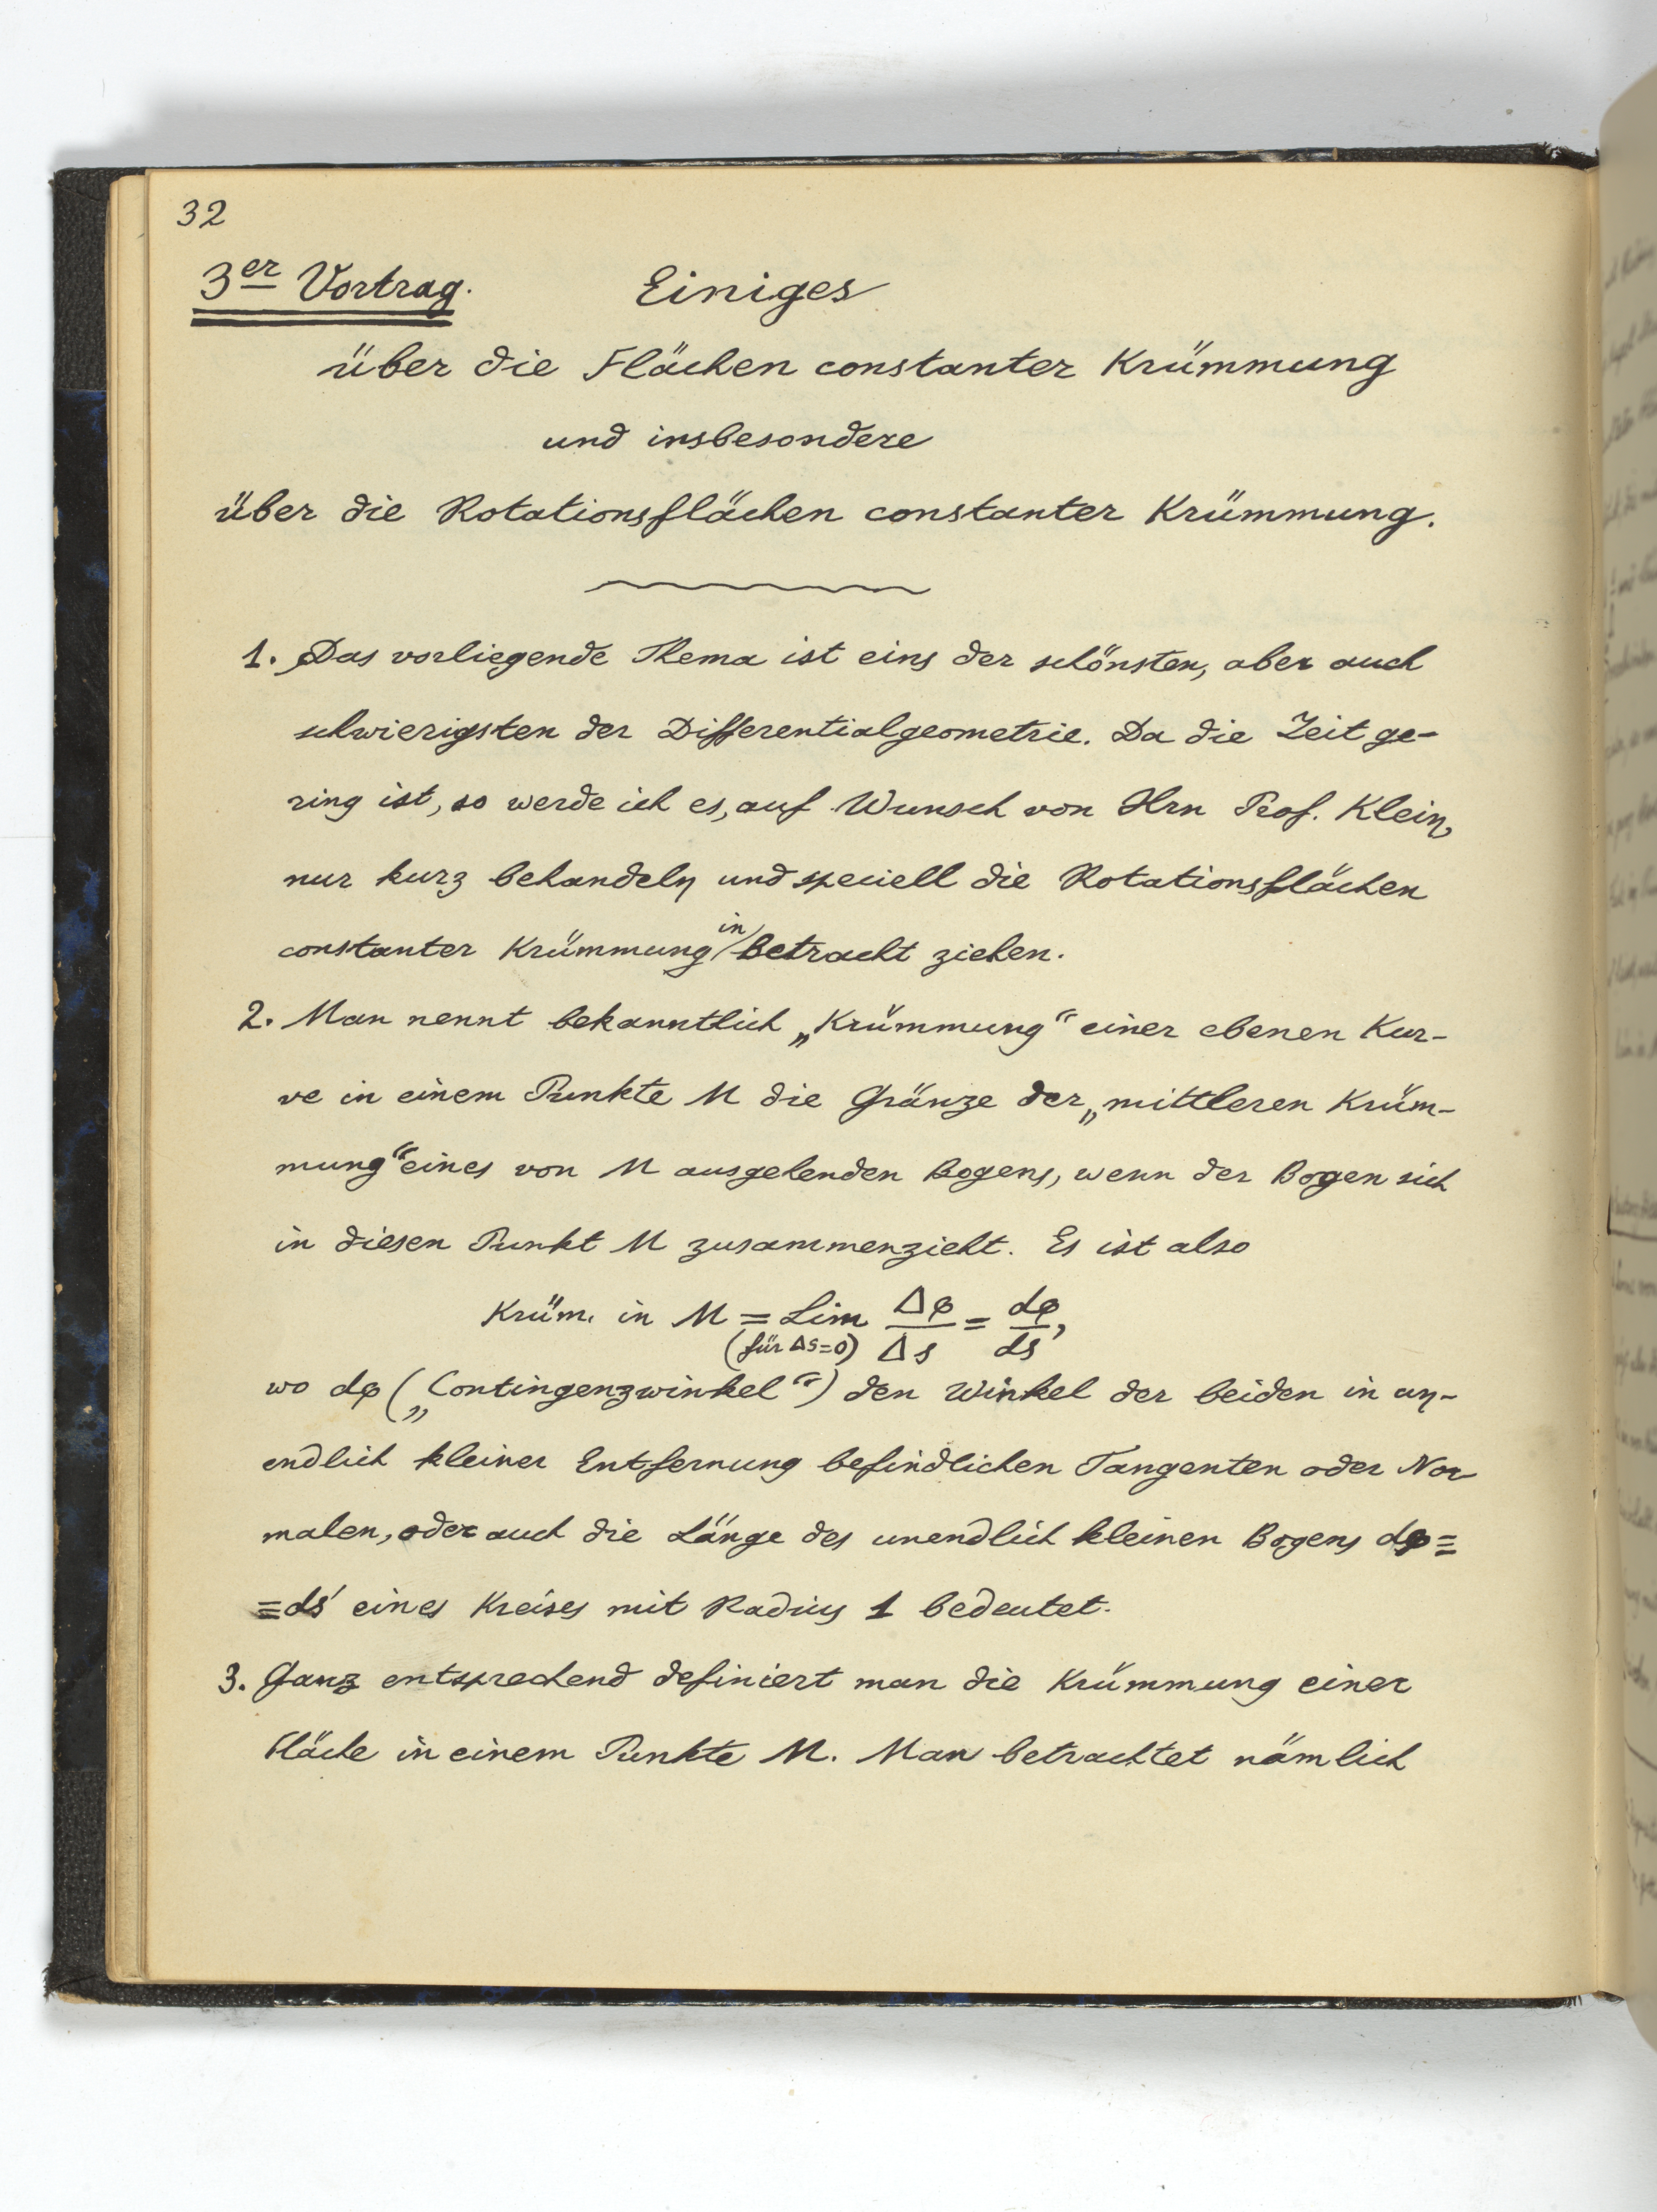 32
3er Vortrag. Einiges
über die Flächen constanter Krümmung
und insbesondere
über die Rotationsflächen constanter Krümmung.
1. Das vorliegende Thema ist eins der schönsten, aber auch
schwierigsten der Differentialgeometrie. Da die Zeit ge-
ring ist, so werde ich es, auf Wunsch von Hrn Prof. Klein,
nur kurz behandeln und speciell die Rotationsflächen
constanter Krümmung in betracht ziehen.
2. Man nennt bekanntlich „Krümmung“ einer ebenen Kur-
ve in einem Punkte M die Gränze der „mittleren Krüm-
mung“ eines von M ausgehenden Bogens, wenn der Bogen sich
in diesen Punkt M zusammenzieht. Es ist also
Krüm. in M = Lim Δφ/Δs = dφ/ds,
(für Δs=0)
wo dφ („Contingenzwinkel“) den Winkel der beiden in un-
endlich kleiner Entfernung befindlichen Tangenten oder Nor-
malen, oder auch die Länge des unendlich kleinen Bogens dφ =
= ds' eines Kreises mit Radius 1 bedeutet.
3. Ganz entsprechend definiert man die Krümmung einer
Fläche in einem Punkte M. Man betrachtet nämlich